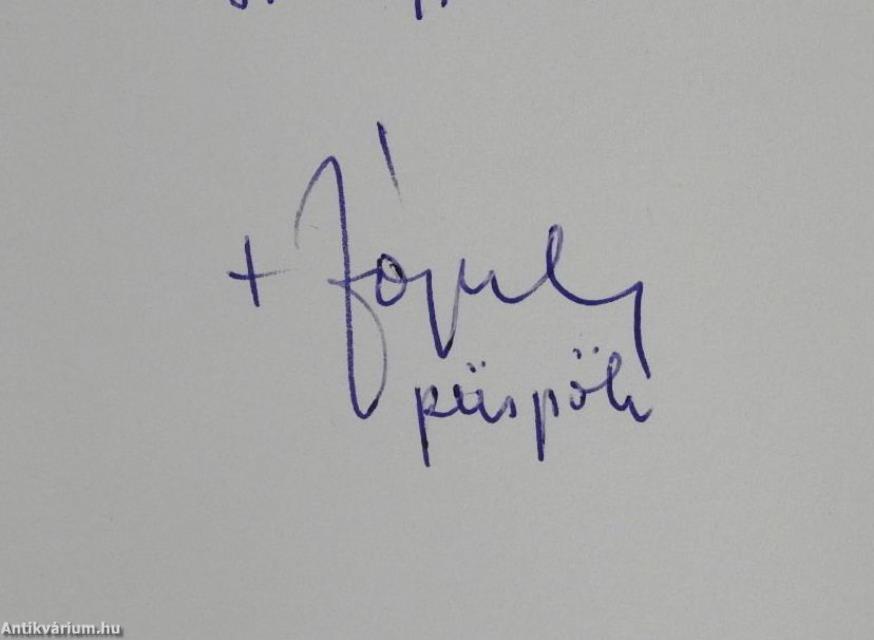 + József
püspök
Antikvárium.hu